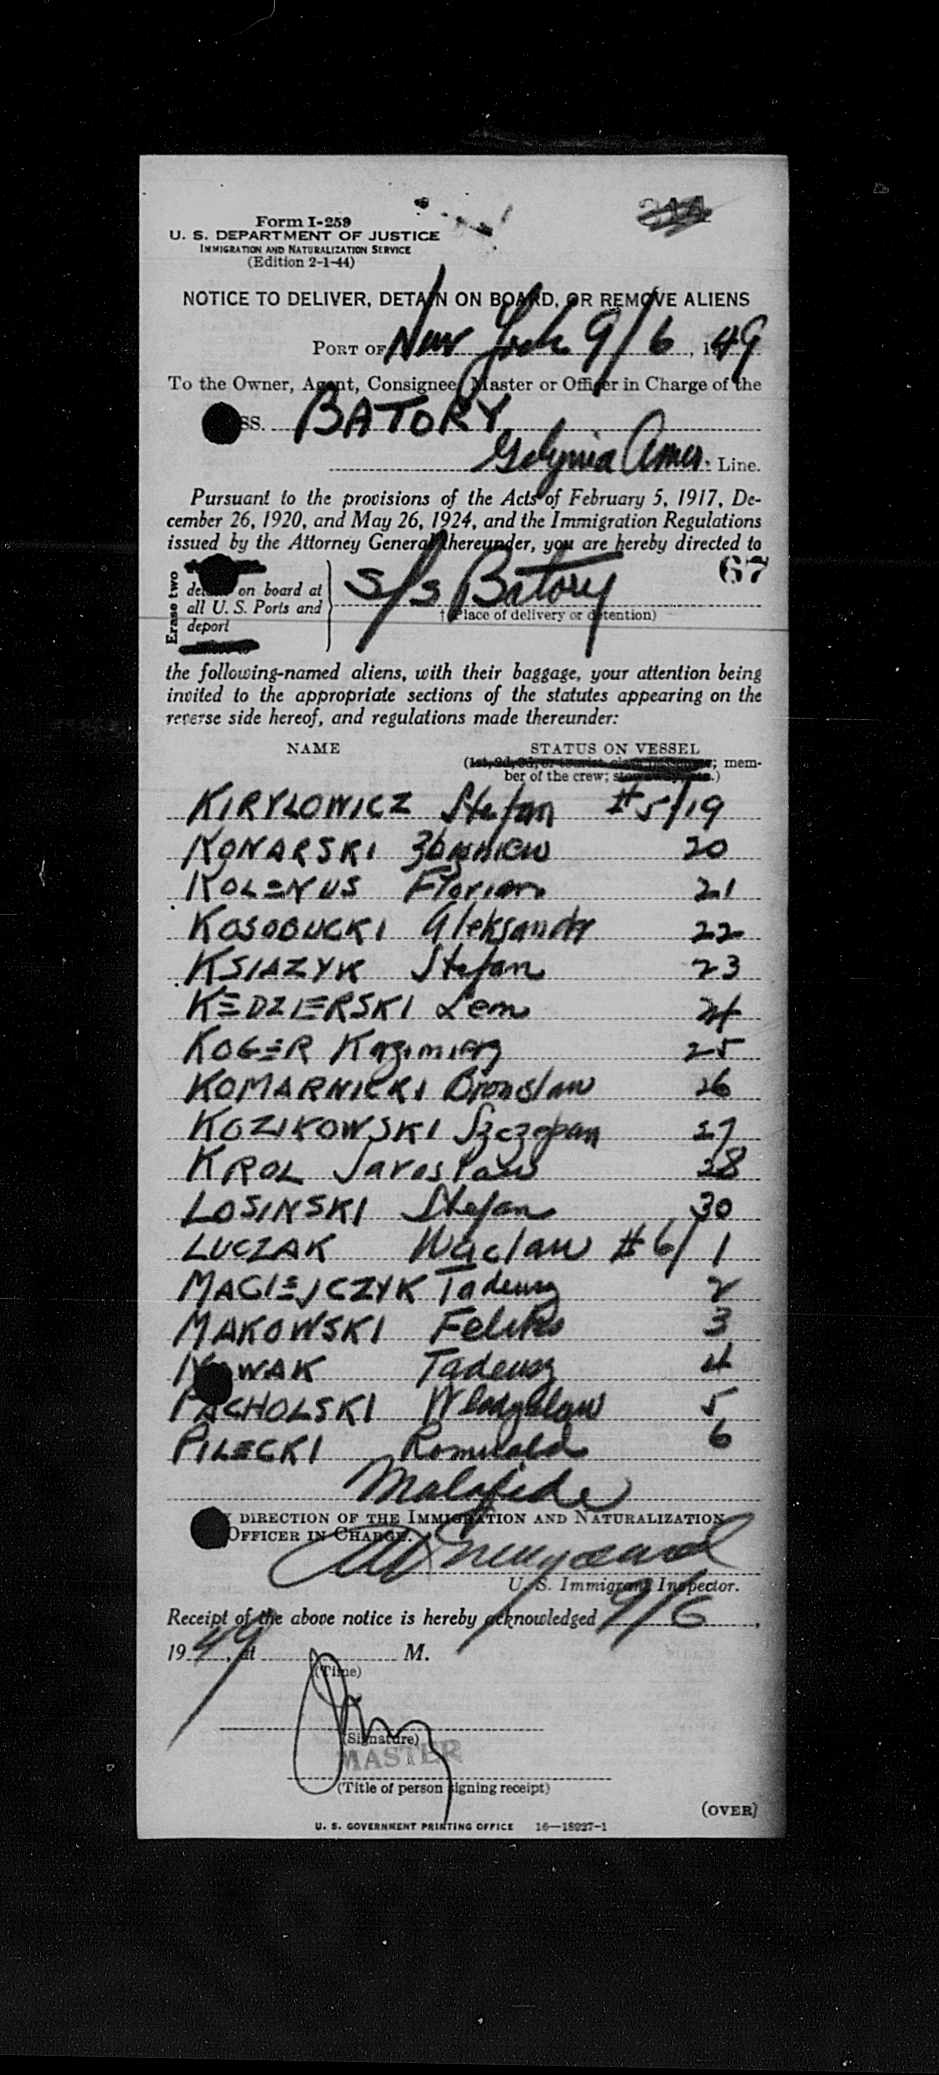 Form I-259
U. S. DEPARTMENT OF JUSTICE
IMMIGRATION AND NATURALIZATION SERVICE
(Edition 2-1-44)
NOTICE TO DELIVER, DETAIN ON BOARD, OR REMOVE ALIENS
PORT OF New York 9/6, 1949
To the Owner, Agent, Consignee, Master or Officer in Charge of the
SS. BATORY
Gdynia Amer. Line.
Pursuant to the provisions of the Acts of February 5, 1917, De-
cember 26, 1920, and May 26, 1924, and the Immigration Regulations
issued by the Attorney General thereunder, you are hereby directed to
67
Erase two
detain on board at
all U. S. Ports and
deport
s/s Batory
†(Place of delivery or detention)
the following-named aliens, with their baggage, your attention being
invited to the appropriate sections of the statutes appearing on the
reverse side hereof, and regulations made thereunder:
NAME STATUS ON VESSEL
(1st, 2d, 3d, or tourist class passenger; mem-
ber of the crew; stowaway, etc.)
KIRYLOWICZ Stefan #5/19
KONARSKI Zbigniew 20
KOLENUS Florian 21
KOSOBUCKI Aleksander 22
KSIAZYK Stefan 23
KEDZIERSKI Leon 24
KOGER Kazimierz 25
KOMARNICKI Bronslaw 26
KOZIKOWSKI Szczepan 27
KROL Jaroslaw 28
LOSINSKI Stefan 30
LUCZAK Waclaw #6/1
MACIEJCZYK Tadeusz 2
MAKOWSKI Feliks 3
NOWAK Tadeusz 4
PACHOLSKI Wladyslaw 5
PILECKI Romuald 6
Malafide
BY DIRECTION OF THE IMMIGRATION AND NATURALIZATION
OFFICER IN CHARGE.
U. S. Immigrant Inspector.
Receipt of the above notice is hereby acknowledged 9/6,
1949, at M.
(Time)
(Signature)
MASTER
(Title of person signing receipt)
(OVER)
U. S. GOVERNMENT PRINTING OFFICE 16—18927-1